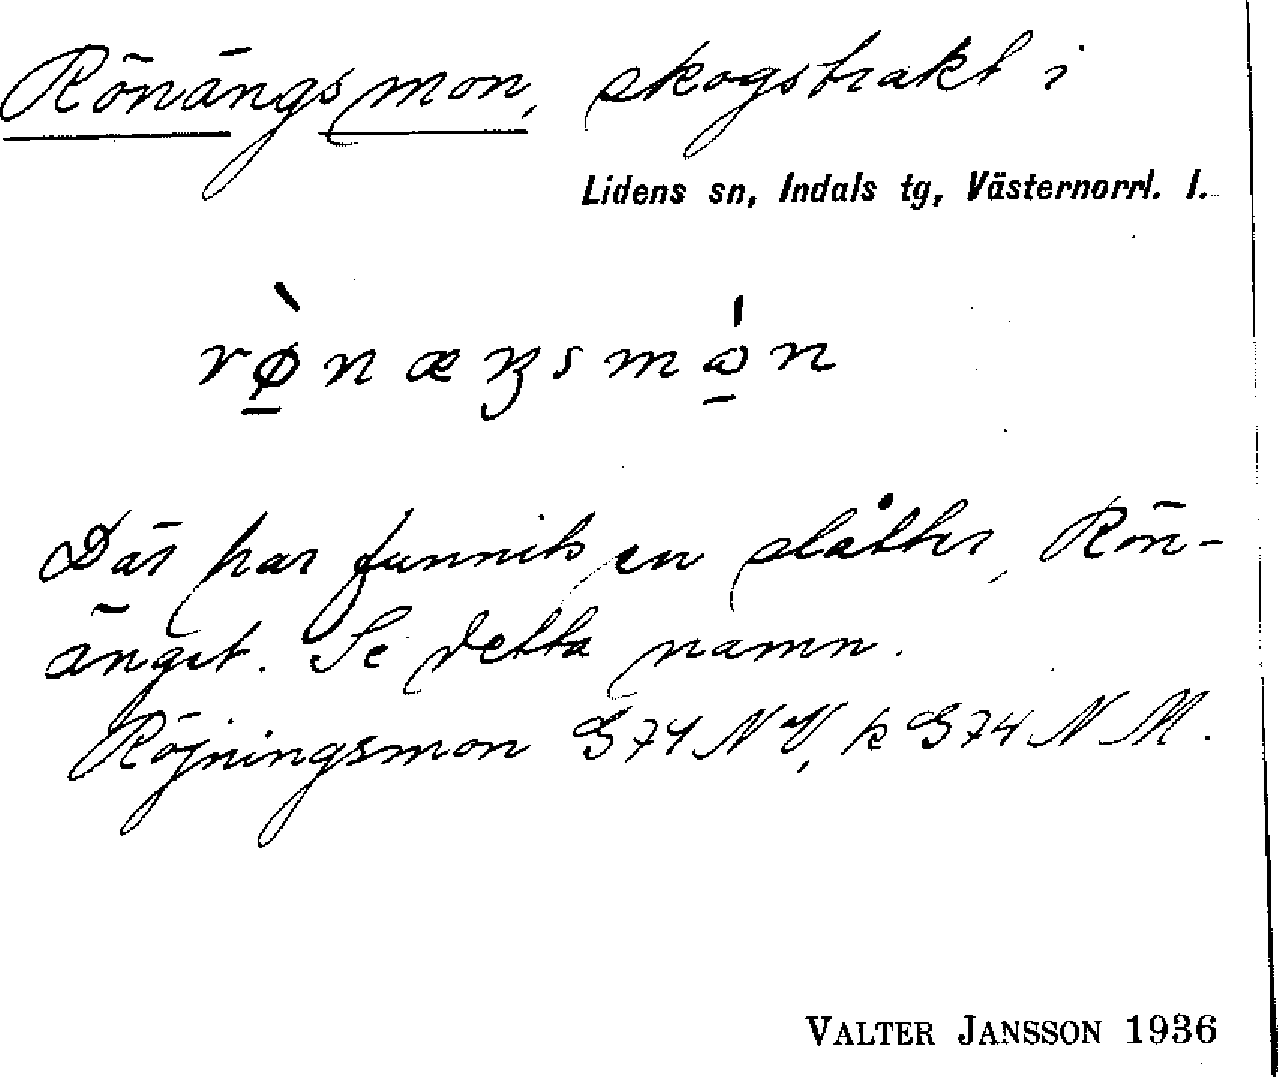 Rönängsmon, skogstrakt i
Lidens sn, Indals tg, Västernorrl. l.
rø̱̀næŋsmώ̱n
Där har funnits en slåtter, Rön-
änget. Se detta namn.
Röjningsmon G74 NV, k G74 NM.
VALTER JANSSON 1936